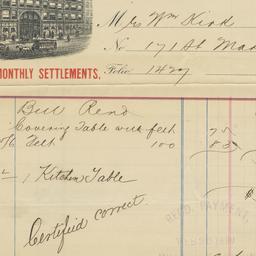 Mrs Wm Kird
No 171 St Mad
MONTHLY SETTLEMENTS, Folio 1427
Bill Rend
Covering Table with felt 75
Felt 100 83
1 Kitchen Table
Certified correct.
REC'D. PAYMENT,